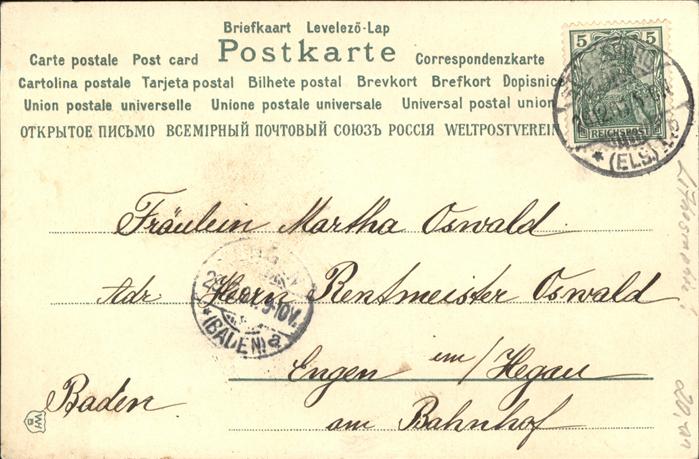 Briefkaart Levelező-Lap
Carte postale Post card Postkarte Correspondenzkarte
Cartolina postale Tarjeta postal Bilhete postal Brevkort Brefkort Dopisnice
Union postale universelle Unione postale universale Universal postal union
ОТКРЫТОЕ ПИСЬМО ВСЕМІРНЫЙ ПОЧТОВЫЙ СОЮЗЪ РОССІЯ WELTPOSTVEREIN
5 5
REICHSPOST
* (ELS.)
Fräulein Martha Oswald
Adr Herrn Rentmeister Oswald
9-10V.
* (BADEN) a
Engen im/Hegau
Baden am Bahnhof